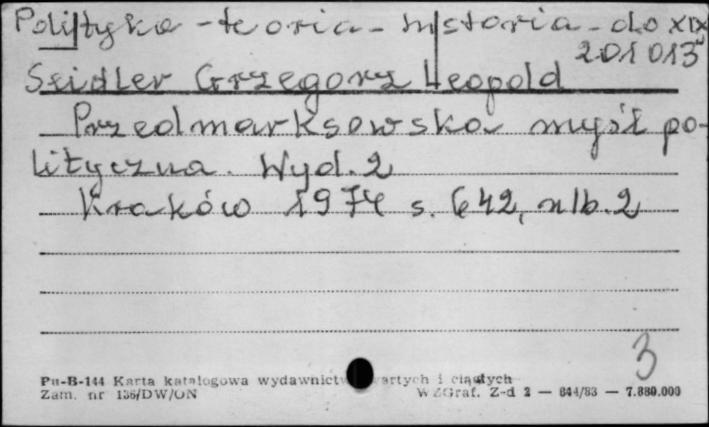 Polityka - teoria - historia - do XIX
201013
Seidler Grzegorz Leopold
Przedmarksowska myśl po-
lityczna. Wyd. 2
Kraków 1974 s. 642, nlb. 2
3
Pu-B-144 Karta katalogowa wydawnictw zwartych i ciągłych
Zam. nr 136/DW/ON WZGraf. Z-d 2 — 644/83 — 7.880.000